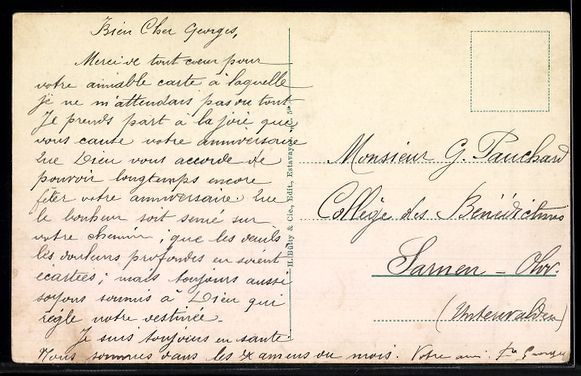 Bien Cher Georges,
Merci de tout cœur pour
votre aimable carte à laquelle
je ne m'attendais pas du tout
Je prends part à la joie que
vous cause votre anniversaire
Que Dieu vous accorde de
pouvoir longtemps encore
fêter votre anniversaire Que
le bonheur soit semé sur
votre chemin; que les deuils
les douleurs profondes en soient
écartées; mais toujours aussi
soyons soumis à Dieu qui
règle notre destinée.
Je suis toujours en santé.
Nous sommes dans les examens du mois. Votre ami: Georges
H. Butty & Cie, Edit., Estavayer
Monsieur G. Pauchard
Collège des Bénédictins
Sarnen - Obw.
(Unterwalden)